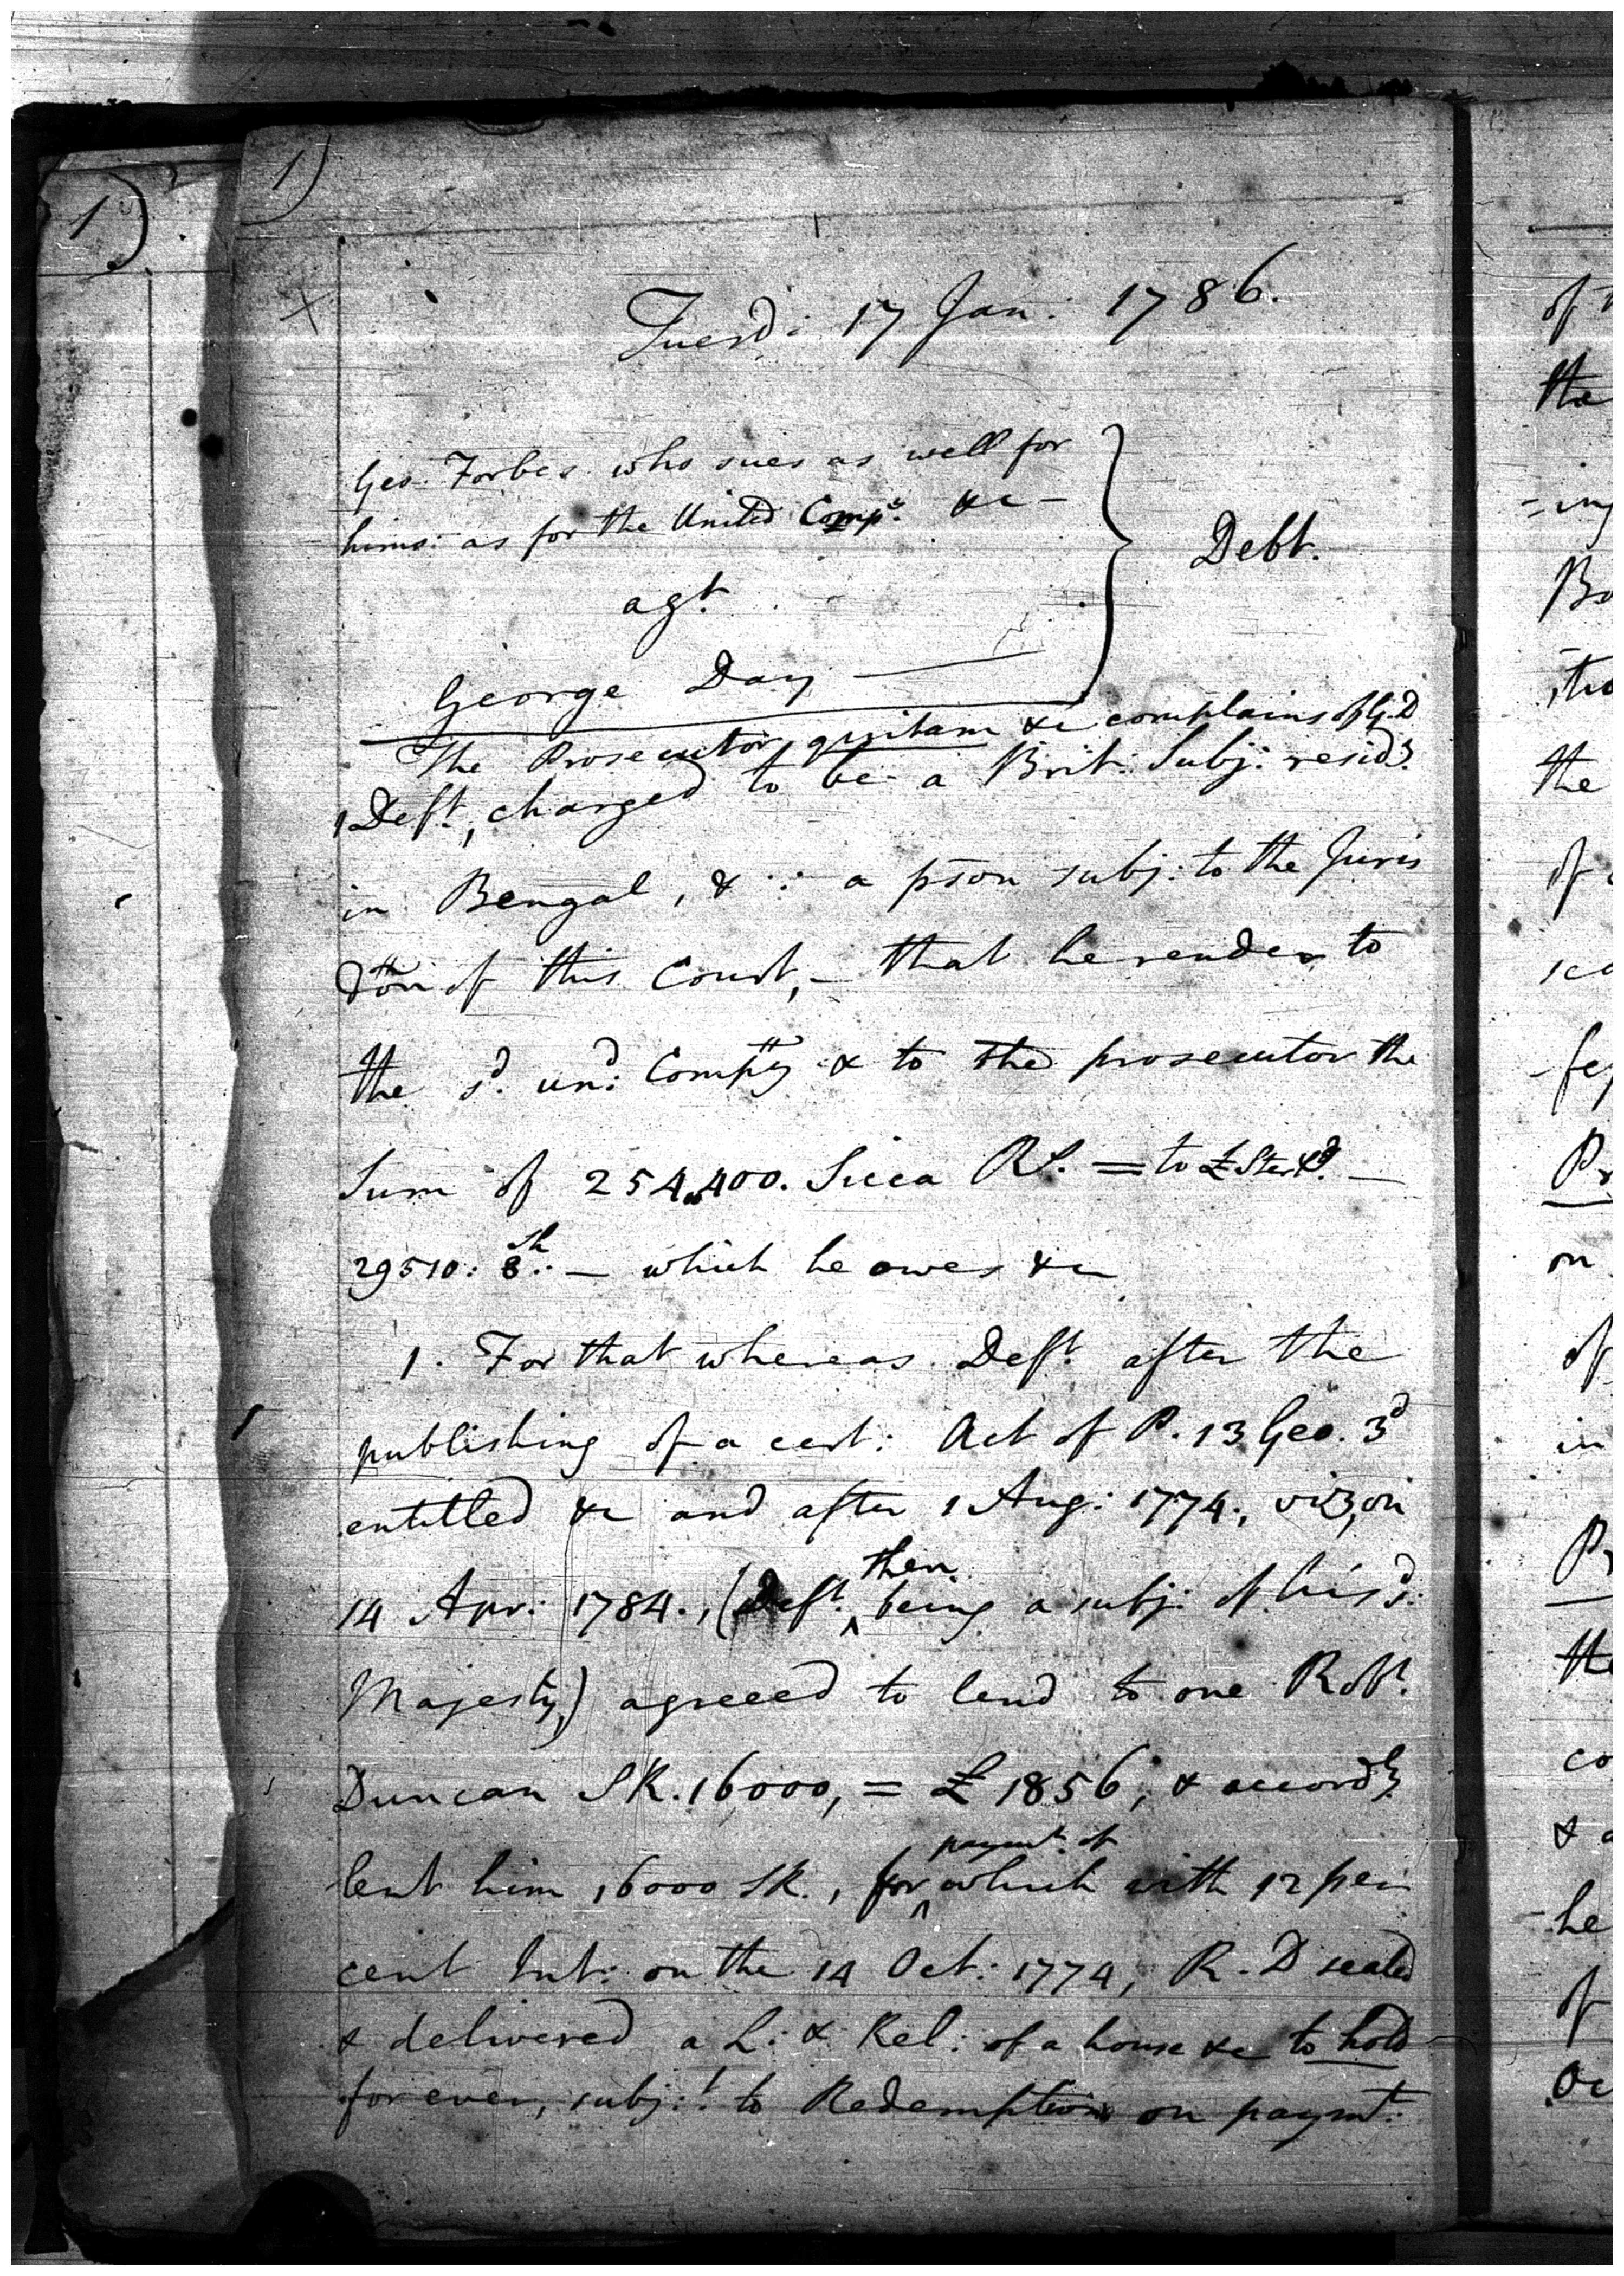 1)
1)
Tuesd: 17 Jan: 1786.
Geo. Forbes who sues as well for
hims: as for the United Compy. &c —
agt.
George Day —
Debt.
The Prosecutor quitam &c complains of G.D
Deft, charged to be a Brit: Subj: resid.
in Bengal, & ∵ a pson subj: to the Juris
dton of this Court, — that he render to
the sd. und: Compy & to the prosecutor the
Sum of 254,400. Sicca RS. = to £ Sterlg. —
29510: 8sh: — which he owes &c
1. For that whereas Deft. after the
publishing of a cert: Act of P. 13 Geo. 3d
entitled &c and after 1 Aug: 1774, viz, on
14 Apr: 1784., (Deft. then being a subj: of his sd:
Majesty,) agreeed to lend to one Robt.
Duncan SR. 16000, = £ 1856, & accordy.
lent him 16000 SR., for paymt. of which with 12 per
cent Int: on the 14 Oct: 1774, R. D sealed
& delivered a L: & Rel: of a house &c to hold
for ever, subj:t to Redemption on paymt:
of
the